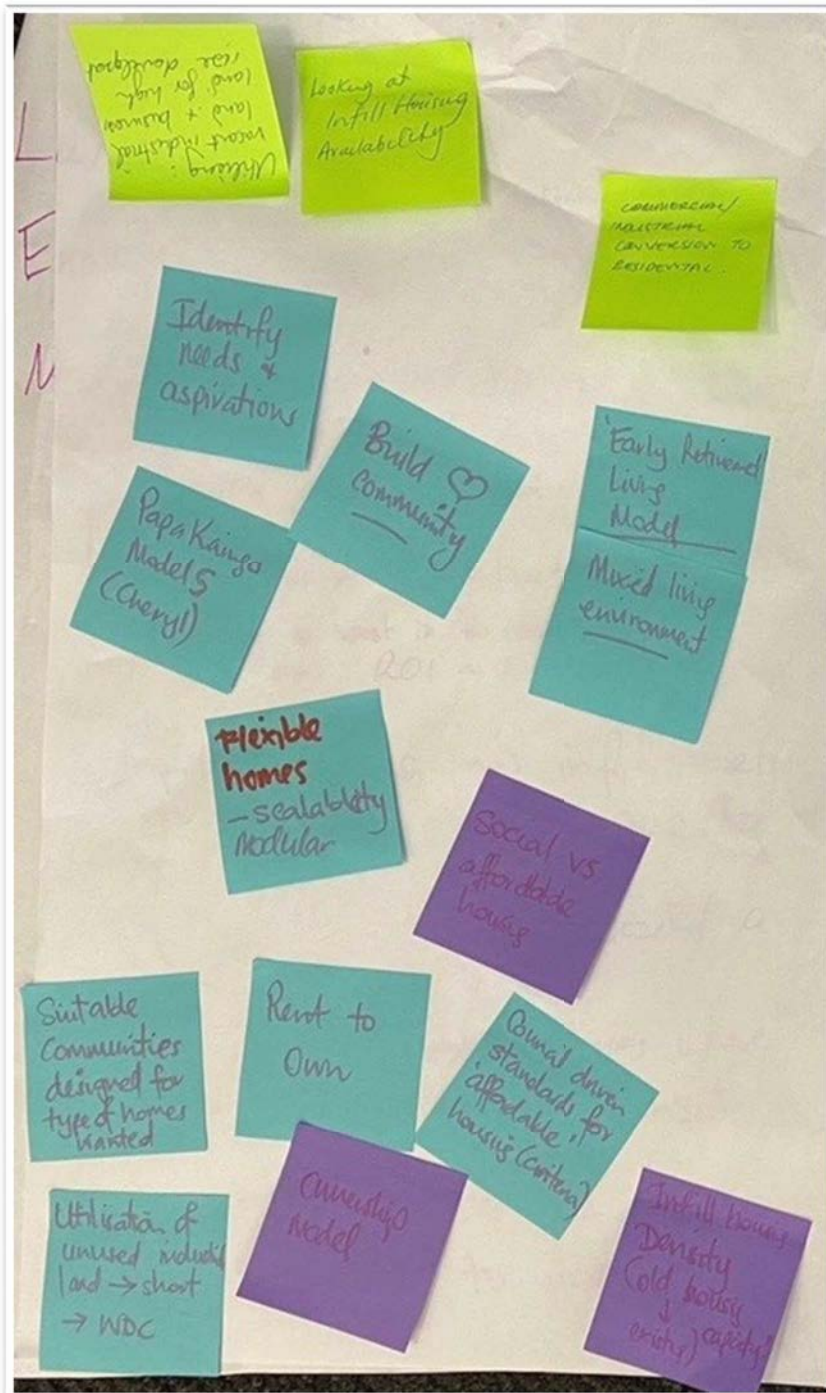 Utilising:
vacant industrial
land + business
land for high
rise
Looking at
Infill Housing
Availability
COMMERCIAL/
INDUSTRIAL
CONVERSION TO
RESIDENTAL.
Identify
needs &
aspirations
Build ♡
community
'Early Retirement
Living
Model
PapaKainga
Models
(Cheryl)
Mixed living
environment
Flexible
homes
- scalablity
Modular
Social vs.
affordable
housing
Suitable
Communities
designed for
type of homes
wanted
Rent to
Own
Council driven
standards for
'affordable'
housing (criteria)
Utilisation of
unused
land → short
→ WDC
Ownership
Model
Infill housing
Density
(old housing
↓ capacity
existing)
L
E